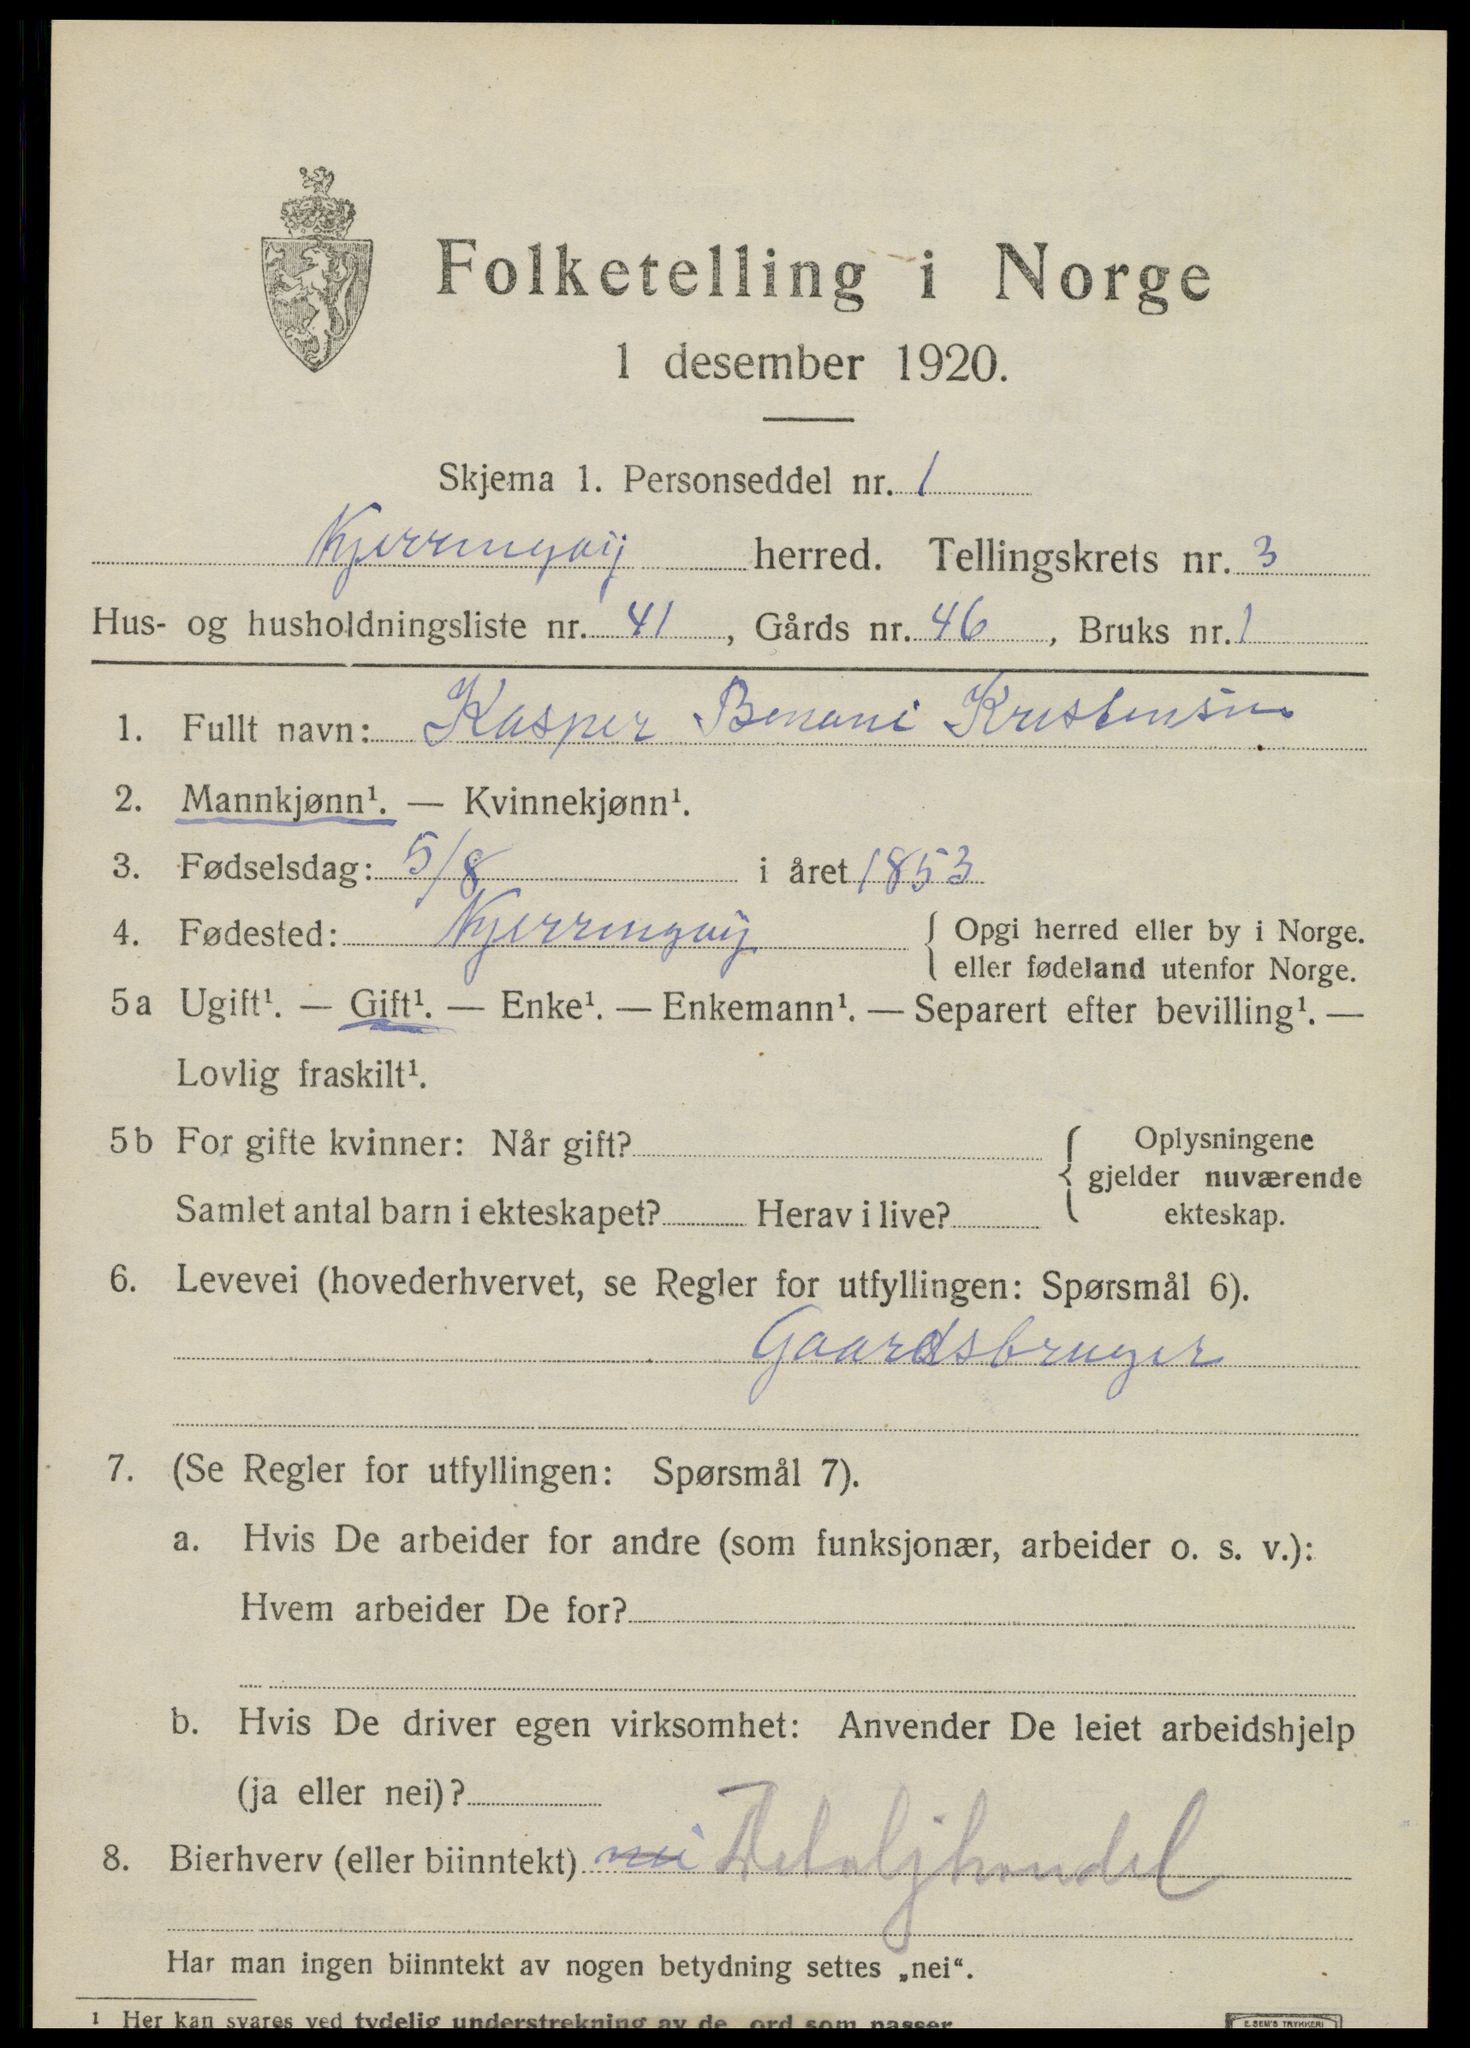 Folketelling i Norge
1 desember 1920.
Skjema 1. Personseddel nr. 1
Kjerringøy herred. Tellingskrets nr. 3
Hus- og husholdningsliste nr. 41, Gårds nr. 46, Bruks nr. 1
1. Fullt navn: Kasper Benoni Kristensen
2. Mannkjønn¹. — Kvinnekjønn¹.
3. Fødselsdag: 5/8 i året 1853
4. Fødested: Kjerringøy { Opgi herred eller by i Norge.
eller fødeland utenfor Norge.
5a Ugift¹. — Gift¹. — Enke¹. — Enkemann¹. — Separert efter bevilling¹. —
Lovlig fraskilt¹.
5b For gifte kvinner: Når gift? { Oplysningene
gjelder nuværende
Samlet antal barn i ekteskapet? Herav i live? ekteskap.
6. Levevei (hovederhvervet, se Regler for utfyllingen: Spørsmål 6).
Gaardsbruger
7. (Se Regler for utfyllingen: Spørsmål 7).
a. Hvis De arbeider for andre (som funksjonær, arbeider o. s. v.):
Hvem arbeider De for?
b. Hvis De driver egen virksomhet: Anvender De leiet arbeidshjelp
(ja eller nei)?
8. Bierhverv (eller biinntekt) nei Detaljhandel
Har man ingen biinntekt av nogen betydning settes „nei“.
¹ Her kan svares ved tydelig understrekning av de ord som passer.
E. SEM'S TRYKKERI